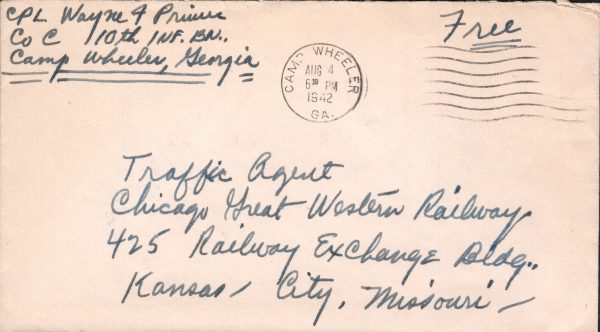 CPL Wayne F Primer
Co C 10th INF. BN.
Camp Wheeler, Georgia
CAMP WHEELER
AUG 4
6 30 PM
1942
GA.
Free
Traffic Agent
Chicago Great Western Railway
425 Railway Exchange Bldg.
Kansas City, Missouri